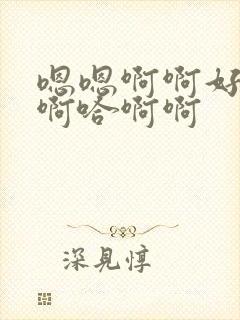 嗯嗯啊啊好
啊哈啊啊
深見惇